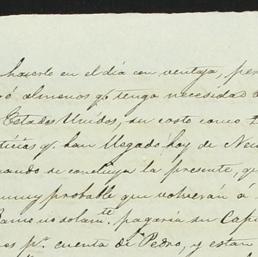 hacerlo en el día con ventaja, per
ó, almenos qe tengo necesidad
Estados Unidos, su costo como
ticias qe han llegado hoy de Nue
ando se concluya la presente, qu
muy probable que volverán á
no solamte pagaría su Capi
es pr. cuenta de Pedro, y estan